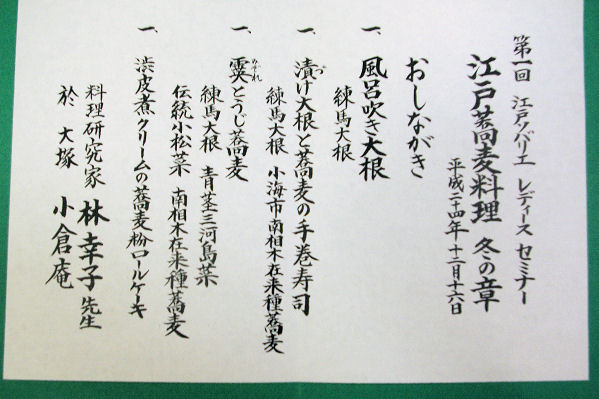 第一回 江戸ソバリエ レディース セミナー
江戸蕎麦料理 冬の章
平成二十四年十二月十六日
おしながき
一、風呂吹き大根
練馬大根
一、漬け大根と蕎麦の手巻寿司
練馬大根 小海市南相木在来種蕎麦
一、霙とうじ蕎麦
練馬大根 青茎三河島菜
伝統小松菜 南相木在来種蕎麦
一、渋皮煮クリームの蕎麦粉ロールケーキ
料理研究家 林幸子先生
於 大塚 小倉庵